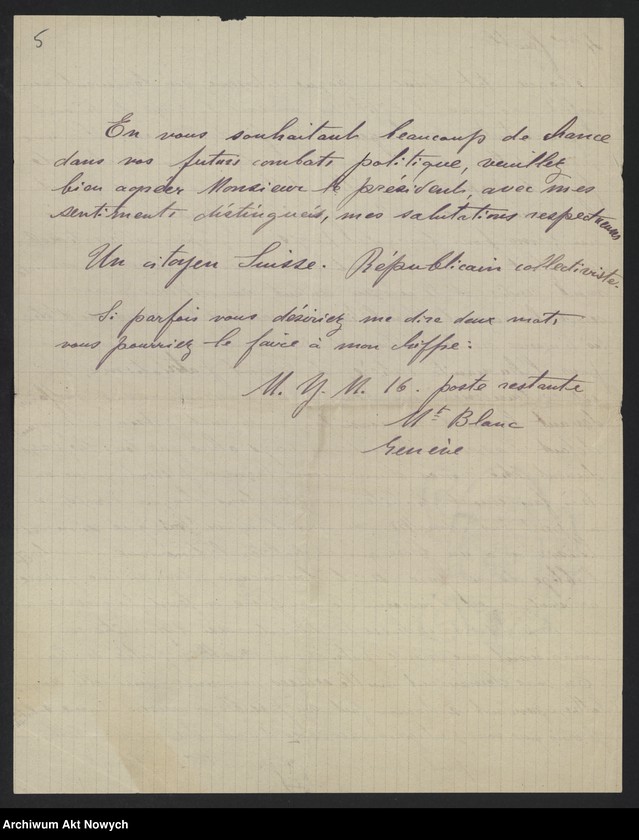 5
En vous souhaitant beaucoup de chance
dans vos futurs combats politique, veuillez
bien agréer Monsieur le président, avec mes
sentiments distingueés, mes salutations respectueuses
Un citoyen Suisse. Républicain collectiviste.
Si parfois vous désiriez me dire deux mots
vous pourriez le faire à mon chiffre:
M. Y. M. 16. poste restante
Mt Blanc
Genève
Archiwum Akt Nowych